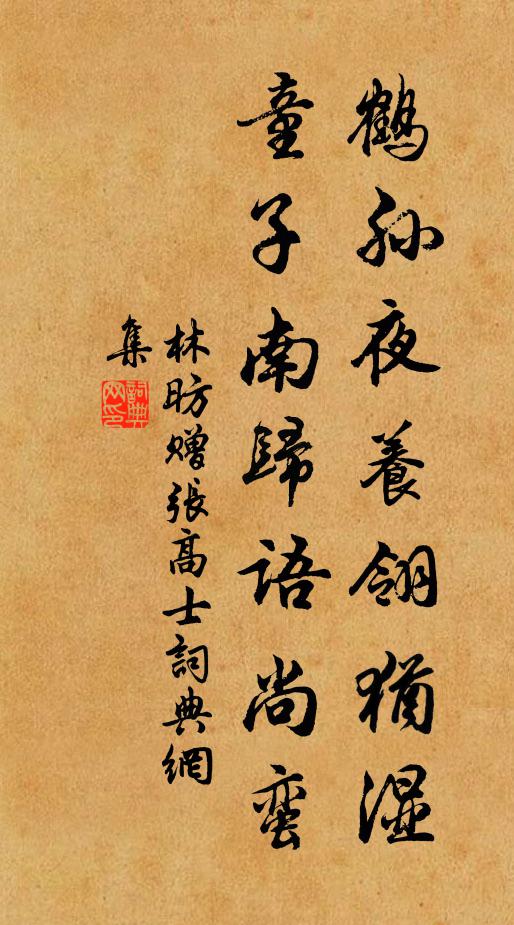 鶴孙夜養翎猶濕
童子南歸語尚蛮
林昉赠張高士詞典網
集
詞典網印